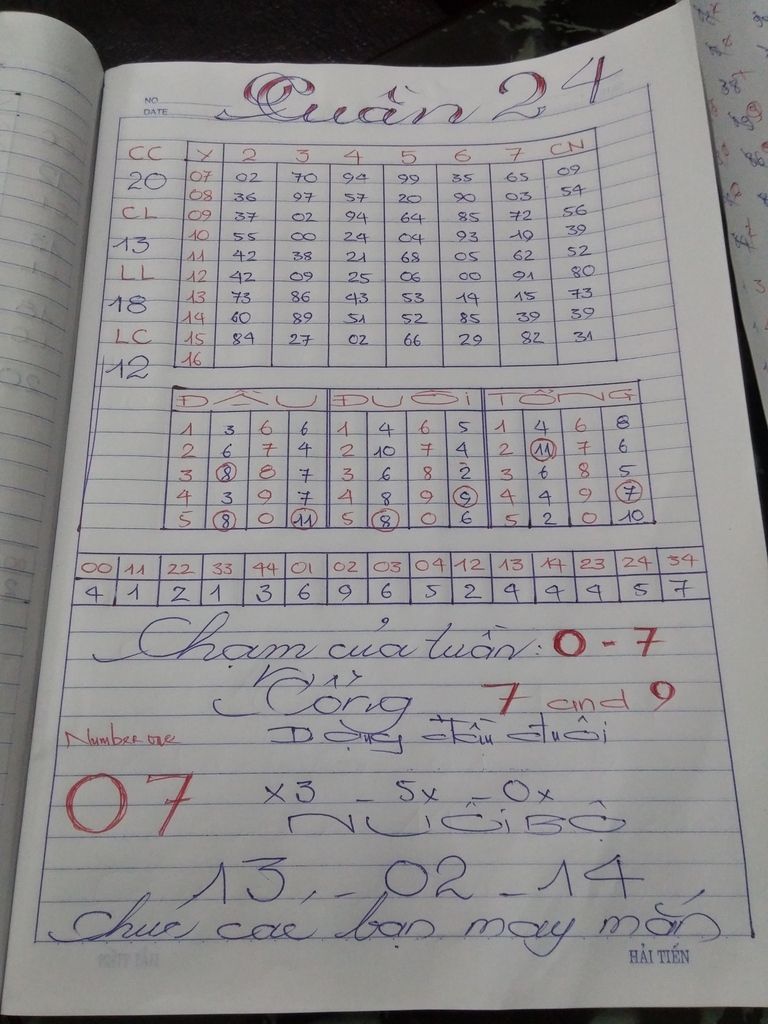 NO
DATE
Tuần 24
CC Y 2 3 4 5 6 7 CN
20 07 02 70 94 99 35 65 09
08 36 97 57 20 90 03 54
CL 09 37 02 94 64 85 72 56
13 10 55 00 24 04 93 19 39
LL 11 42 38 21 68 05 62 52
18 12 42 09 25 06 00 91 80
13 73 86 43 53 14 15 73
LC 14 60 89 51 52 85 39 39
12 15 84 27 02 66 29 82 31
16
ĐẦU ĐUÔI TỔNG
1 3 6 6 1 4 6 5 1 4 6 8
2 6 7 4 2 10 7 4 2 11 7 6
3 8 8 7 3 6 8 2 3 6 8 5
4 3 9 7 4 8 9 9 4 4 9 7
5 8 0 11 5 8 0 6 5 2 0 10
00 11 22 33 44 01 02 03 04 12 13 14 23 24 34
4 1 2 1 3 6 9 6 5 2 4 4 4 5 7
Chạm của tuần: 0 - 7
Tổng 7 and 9
Number one Dạng đầu đuôi
07 x3 - 5x - 0x
NUÔI BỘ
13 - 02 - 14
Chúc các bạn may mắn
HẢI TIẾN